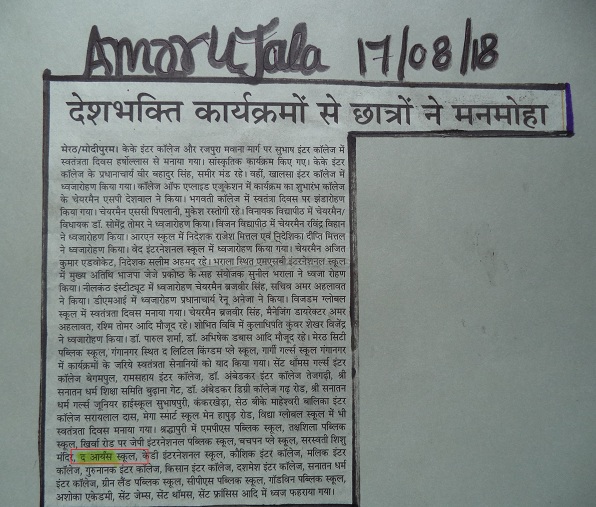 Amar Ujala 17/08/18
देशभक्ति कार्यक्रमों से छात्रों ने मनमोहा
मेरठ/मोदीपुरम। केके इंटर कॉलेज और रजपुरा मवाना मार्ग पर सुभाष इंटर कॉलेज में
स्वतंत्रता दिवस हर्षोल्लास से मनाया गया। सांस्कृतिक कार्यक्रम किए गए। केके इंटर
कॉलेज के प्रधानाचार्य वीर बहादुर सिंह, समीर मंड रहे। वहीं, खालसा इंटर कॉलेज में
ध्वजारोहण किया गया। कॉलेज ऑफ एप्लाइड एजूकेशन में कार्यक्रम का शुभारंभ कॉलेज
के चेयरमैन एसपी देशवाल ने किया। भगवती कॉलेज में स्वतंत्रा दिवस पर झंडारोहण
किया गया। चेयरमैन एससी पिपलानी, मुकेश रस्तोगी रहे। विनायक विद्यापीठ में चेयरमैन/
विधायक डॉ. सोमेंद्र तोमर ने ध्वजारोहण किया। विजन विद्यापीठ में चेयरमैन रविंद्र विहान
ने ध्वजारोहण किया। आरएन स्कूल में निदेशक राजेश मित्तल एवं निदेशिका दीप्ति मित्तल
ने ध्वजारोहण किया। वेद इंटरनेशनल स्कूल में ध्वजारोहण किया गया। चेयरमैन अजित
कुमार एडवोकेट, निदेशक सलीम अहमद रहे। भराला स्थित एमएसबी इंटरनेशनल स्कूल
में मुख्य अतिथि भाजपा जेजे प्रकोष्ठ के सह संयोजक सुनील भराला ने ध्वजा रोहण
किया। नीलकंठ इंस्टीट्यूट में ध्वजारोहण चेयरमैन ब्रजवीर सिंह, सचिव अमर अहलावत
ने किया। डीएमआई में ध्वजारोहण प्रधानाचार्य रेनू अनेजा ने किया। विजडम ग्लोबल
स्कूल में स्वतंत्रता दिवस मनाया गया। चेयरमैन ब्रतवीर सिंह, मैनेजिंग डायरेक्टर अमर
अहलावत, रश्मि तोमर आदि मौजूद रहे। शोभित विवि में कुलाधिपति कुंवर शेखर विजेंद्र
ने ध्वजारोहण किया। डॉ. पारुल शर्मा, डॉ. अभिषेक डबास आदि मौजूद रहे। मेरठ सिटी
पब्लिक स्कूल, गंगानगर स्थित द लिटिल किंगडम प्ले स्कूल, गार्गी गर्ल्स स्कूल गंगानगर
में कार्यक्रमों के जरिये स्वतंत्रता सेनानियों को याद किया गया। सेंट थॉमस गर्ल्स इंटर
कॉलेज बेगमपुल, रामसहाय इंटर कॉलेज, डॉ. अंबेडकर इंटर कॉलेज तेजगढ़ी, श्री
सनातन धर्म शिक्षा समिति बुढ़ाना गेट, डॉ. अंबेडकर डिग्री कॉलेज गढ़ रोड, श्री सनातन
धर्म गर्ल्स जूनियर हाईस्कूल सुभाषपुरी, कंकरखेड़ा, सेठ बीके माहेश्वरी बालिका इंटर
कॉलेज सरायलाल दास, मेगा स्मार्ट स्कूल मेन हापुड़ रोड, विद्या ग्लोबल स्कूल में भी
स्वतंत्रता दिवस मनाया गया। श्रद्धापुरी में एमपीएस पब्लिक स्कूल, तक्षशिला पब्लिक
स्कूल, खिर्वा रोड पर जेपी इंटरनेशनल पब्लिक स्कूल, चचपन प्ले स्कूल, सरस्वती शिशु
मंदिर, द आर्यंस स्कूल, केडी इंटरनेशनल स्कूल, कौशिक इंटर कॉलेज, मलिक इंटर
कॉलेज, गुरुनानक इंटर कॉलेज, किसान इंटर कॉलेज, दशमेश इंटर कॉलेज, सनातन धर्म
इंटर कॉलेज, ग्रीन लैंड पब्लिक स्कूल, सीपीएस पब्लिक स्कूल, गॉडविन पब्लिक स्कूल,
अशोका एकेडमी, सेंट जेम्स, सेंट थॉमस, सेंट फ्रांसिस आदि में ध्वज फहराया गया।